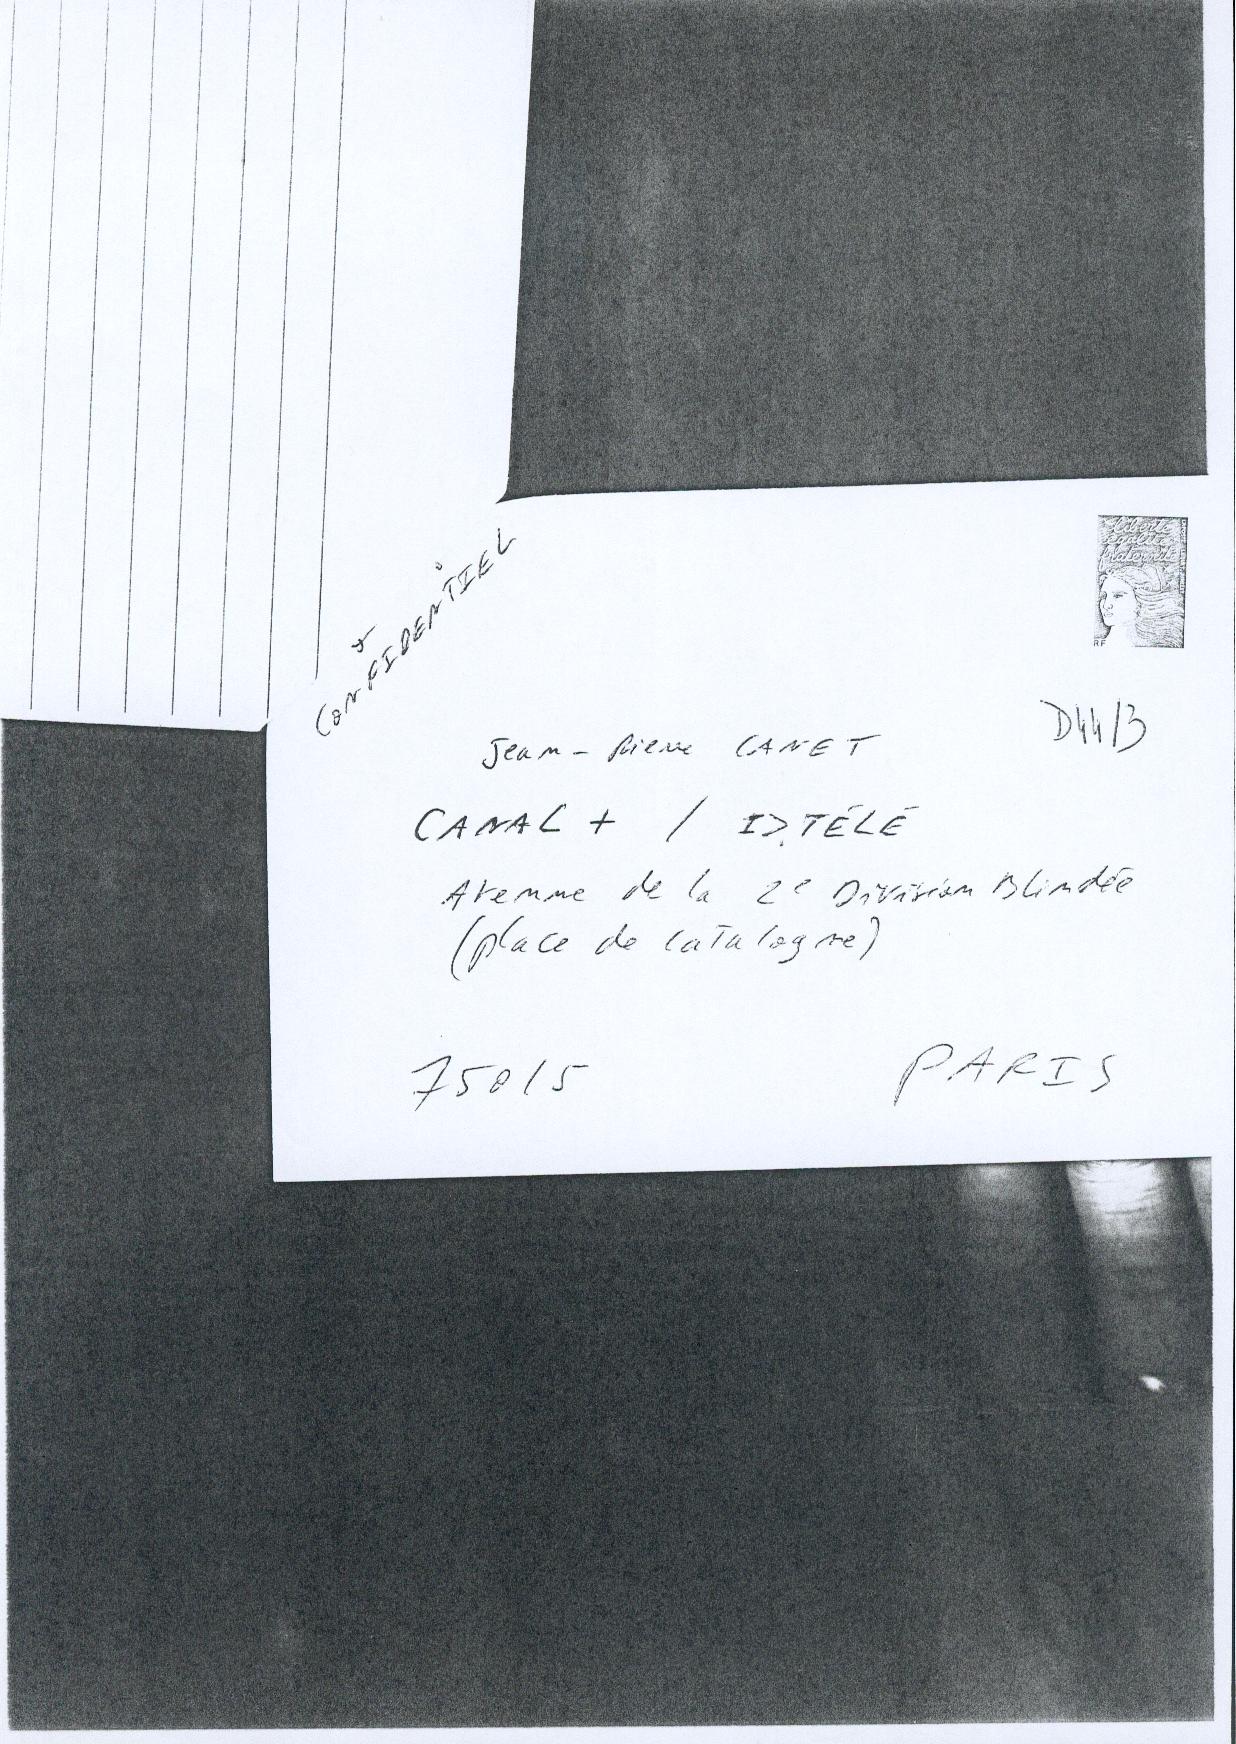 liberté
égalité
fraternité
RF
CONFIDENTIEL
D44/3
Jean-Pierre CANET
CANAL + / I>TÉLÉ
Avenue de la 2e Division Blindée
(place de Catalogne)
75015 PARIS